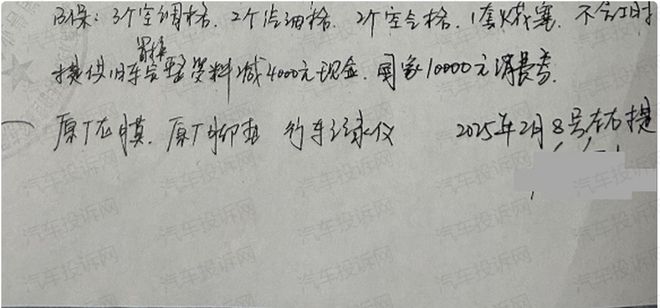 B保：3个空调格、2个汽油格、2个空气格、1套火花塞、不含工时
提供旧车置换完整资料减4000元现金、国家10000元消费券
原厂车膜、原厂脚垫 行车记录仪 2025年2月8号左右提
汽车投诉网